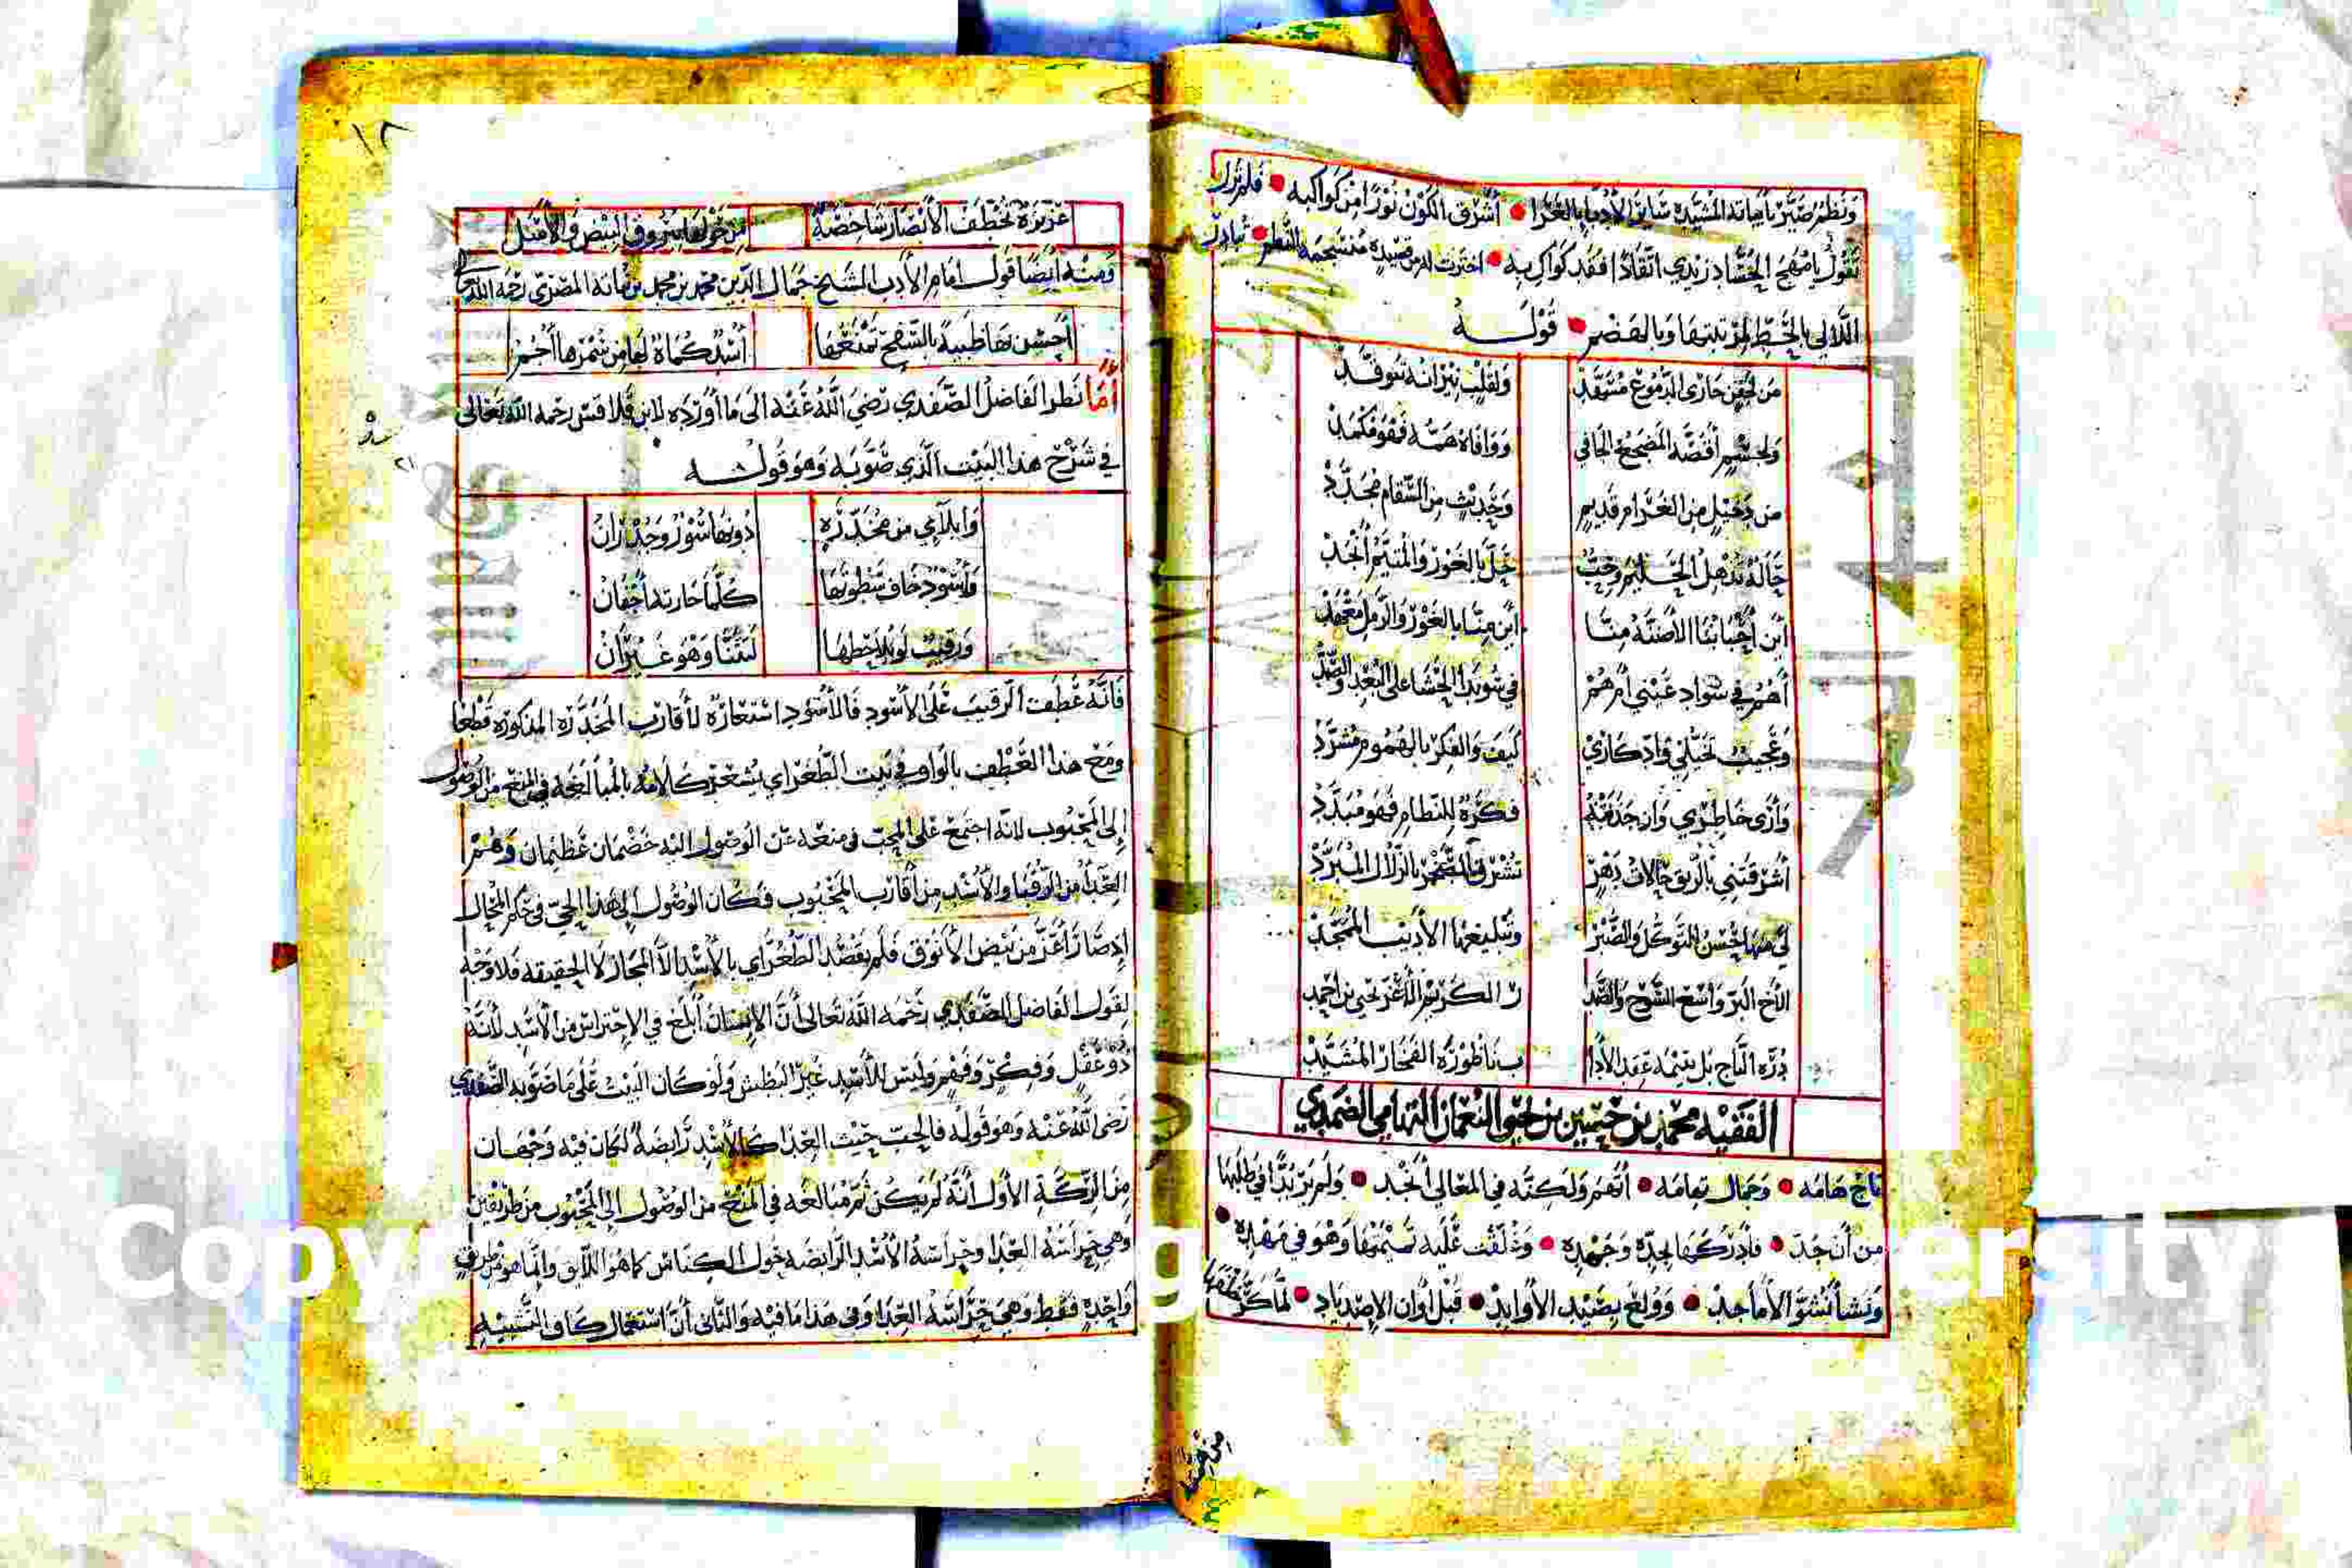 ونظم صيّر بأبياته المشيّده سائر الأدبا بالعرا • أشرق الكون نورًا من كواكبه • فلم تزل
تقول يا مهج الحسّاد زيدي اتقادًا فقد كواكبه • اخترت له من قصيدة منسجمة النظم • تبادل
اللآلي بالخط لم تبتها وبالهضم • قوله
من لجفن جارى الدموع مسهّد ولقلب نيرانه تتوقّد
ولجسم أقضّه المضجع الجافي ووافاه همّه فهو مكمد
من دخيل من الغرام قديم وحديث من السقام مجدّد
حالة تذهل الحليم وحبّ حلّ بالغور والمتيّم أنجد
أين أحبابنا الأضنّة منّا أين منّا بالغور والرمل معهد
أهم في سواد عيني أم هم في سويدا الحشا على البعد والصدّ
وعجيب تخيّلي وادّكاري كيف والفكر بالهموم مشرّد
وأرى خاطري وان جذقته فكرة للنظام فهو مبدّد
أشرقتني بالريق حالات دهر تشرق الصخر بالزلال المبرّد
لي فيها حسن التوكّل والصبر وتبليغها الأديب الممجّد
الأخ البرّ واسع الشرح والصد ر الكريم الأغرّ يحيى بن احمد
درّة التاج بل يتيمة عقد الأدا ب ناظورة الفخار المشيّد
الفقيه محمد بن حسين بن يحيى النعمان التهامي الضمدي
تاج هامه • وجمال تهامه • أتهم ولكنّه في المعالي أنجد • ولم ير بدًّا في طلبها
من أن جدّ • فادركها بجدّه وجهده • وعلقت عليه تميمتها وهو في مهده •
ونشأ نشو الأماجد • وولع بصيد الأوابد • قبل أوان الإصطياد • لما كرّ
عزيزة تخطف الأنصار شاخصة من حولها بسيوف البيض والأسل
ومنه أيضًا قول امام الأدب الشيخ جمال الدين محمد بن محمد بن نباته المصري رحمه الله تعالى
أحسن بها ظبية بالسفح تمنعها أسد كماة لها من سمرها أجم
أما نظر الفاضل الصفدي رضي الله عنه الى ما أورده لابن قلاقس رحمه الله تعالى
في شرح هذا البيت الذي صوّبه وهو قوله
وابلآي من مخدّرة دونها سور وجدران
وأسود خاف سطوتها كلما حارته أجفان
ورقيب لو يلاحظها لتثنّا وهو غيران
فانّه عطف الرقيب على الأسود فالأسود استعارة لأقارب المخدّرة المذكورة قطعا
ومع هذا العطف بالواو في بيت الطغراي يشعر كلامه بالمبالغة في المنع من الوصول
إلى المحبوب لانه اجتمع على المحبّ في منعه عن الوصول اليه خصمان عظيمان وهم
العدا من الرقبا والأسد من أقارب المحبوب فكان الوصول إلى هذا الحيّ في حكم المحال
إذ صار أعزّ من بيض الأنوق فلم يقصد الطغراي بالأسد الّا المجاز لا الحقيقه فلا وجه
لقول الفاضل الصفدي رحمه الله تعالى أنّ الإنسان أبلغ في الإحتراس من الأسد لأنّه
ذو عقل وفكر وفهم وليس للأسد غير البطش ولو كان البيت على ما صوّبه الصفدي
رضي الله عنه وهو قوله فالحبّ حيث العدا كالأسد رابضة لكان فيه وجهان
من الركّة الأول أنّه لم يكن ثم مبالغه في المنع من الوصول إلى المحبوب من طريقين
وهي حراسة العدا وحراسة الأسد الرابضه حول الكناس كما هو اللآيق وانما هو من طرق
واحدة فقط وهي حراسة العدا وفي هذا ما فيه والثاني أنّ استعمال كاف التشبيه